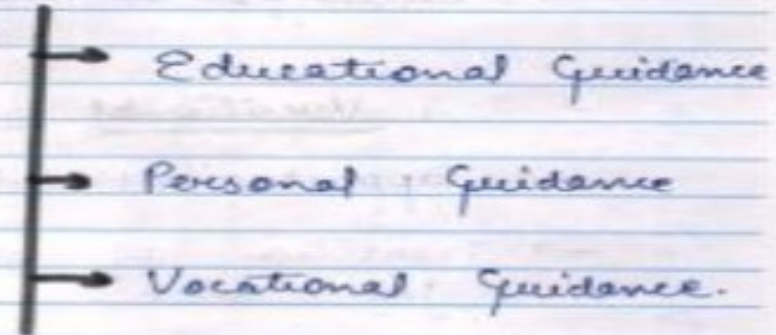 Educational Guidance
Personal Guidance
Vocational Guidance.